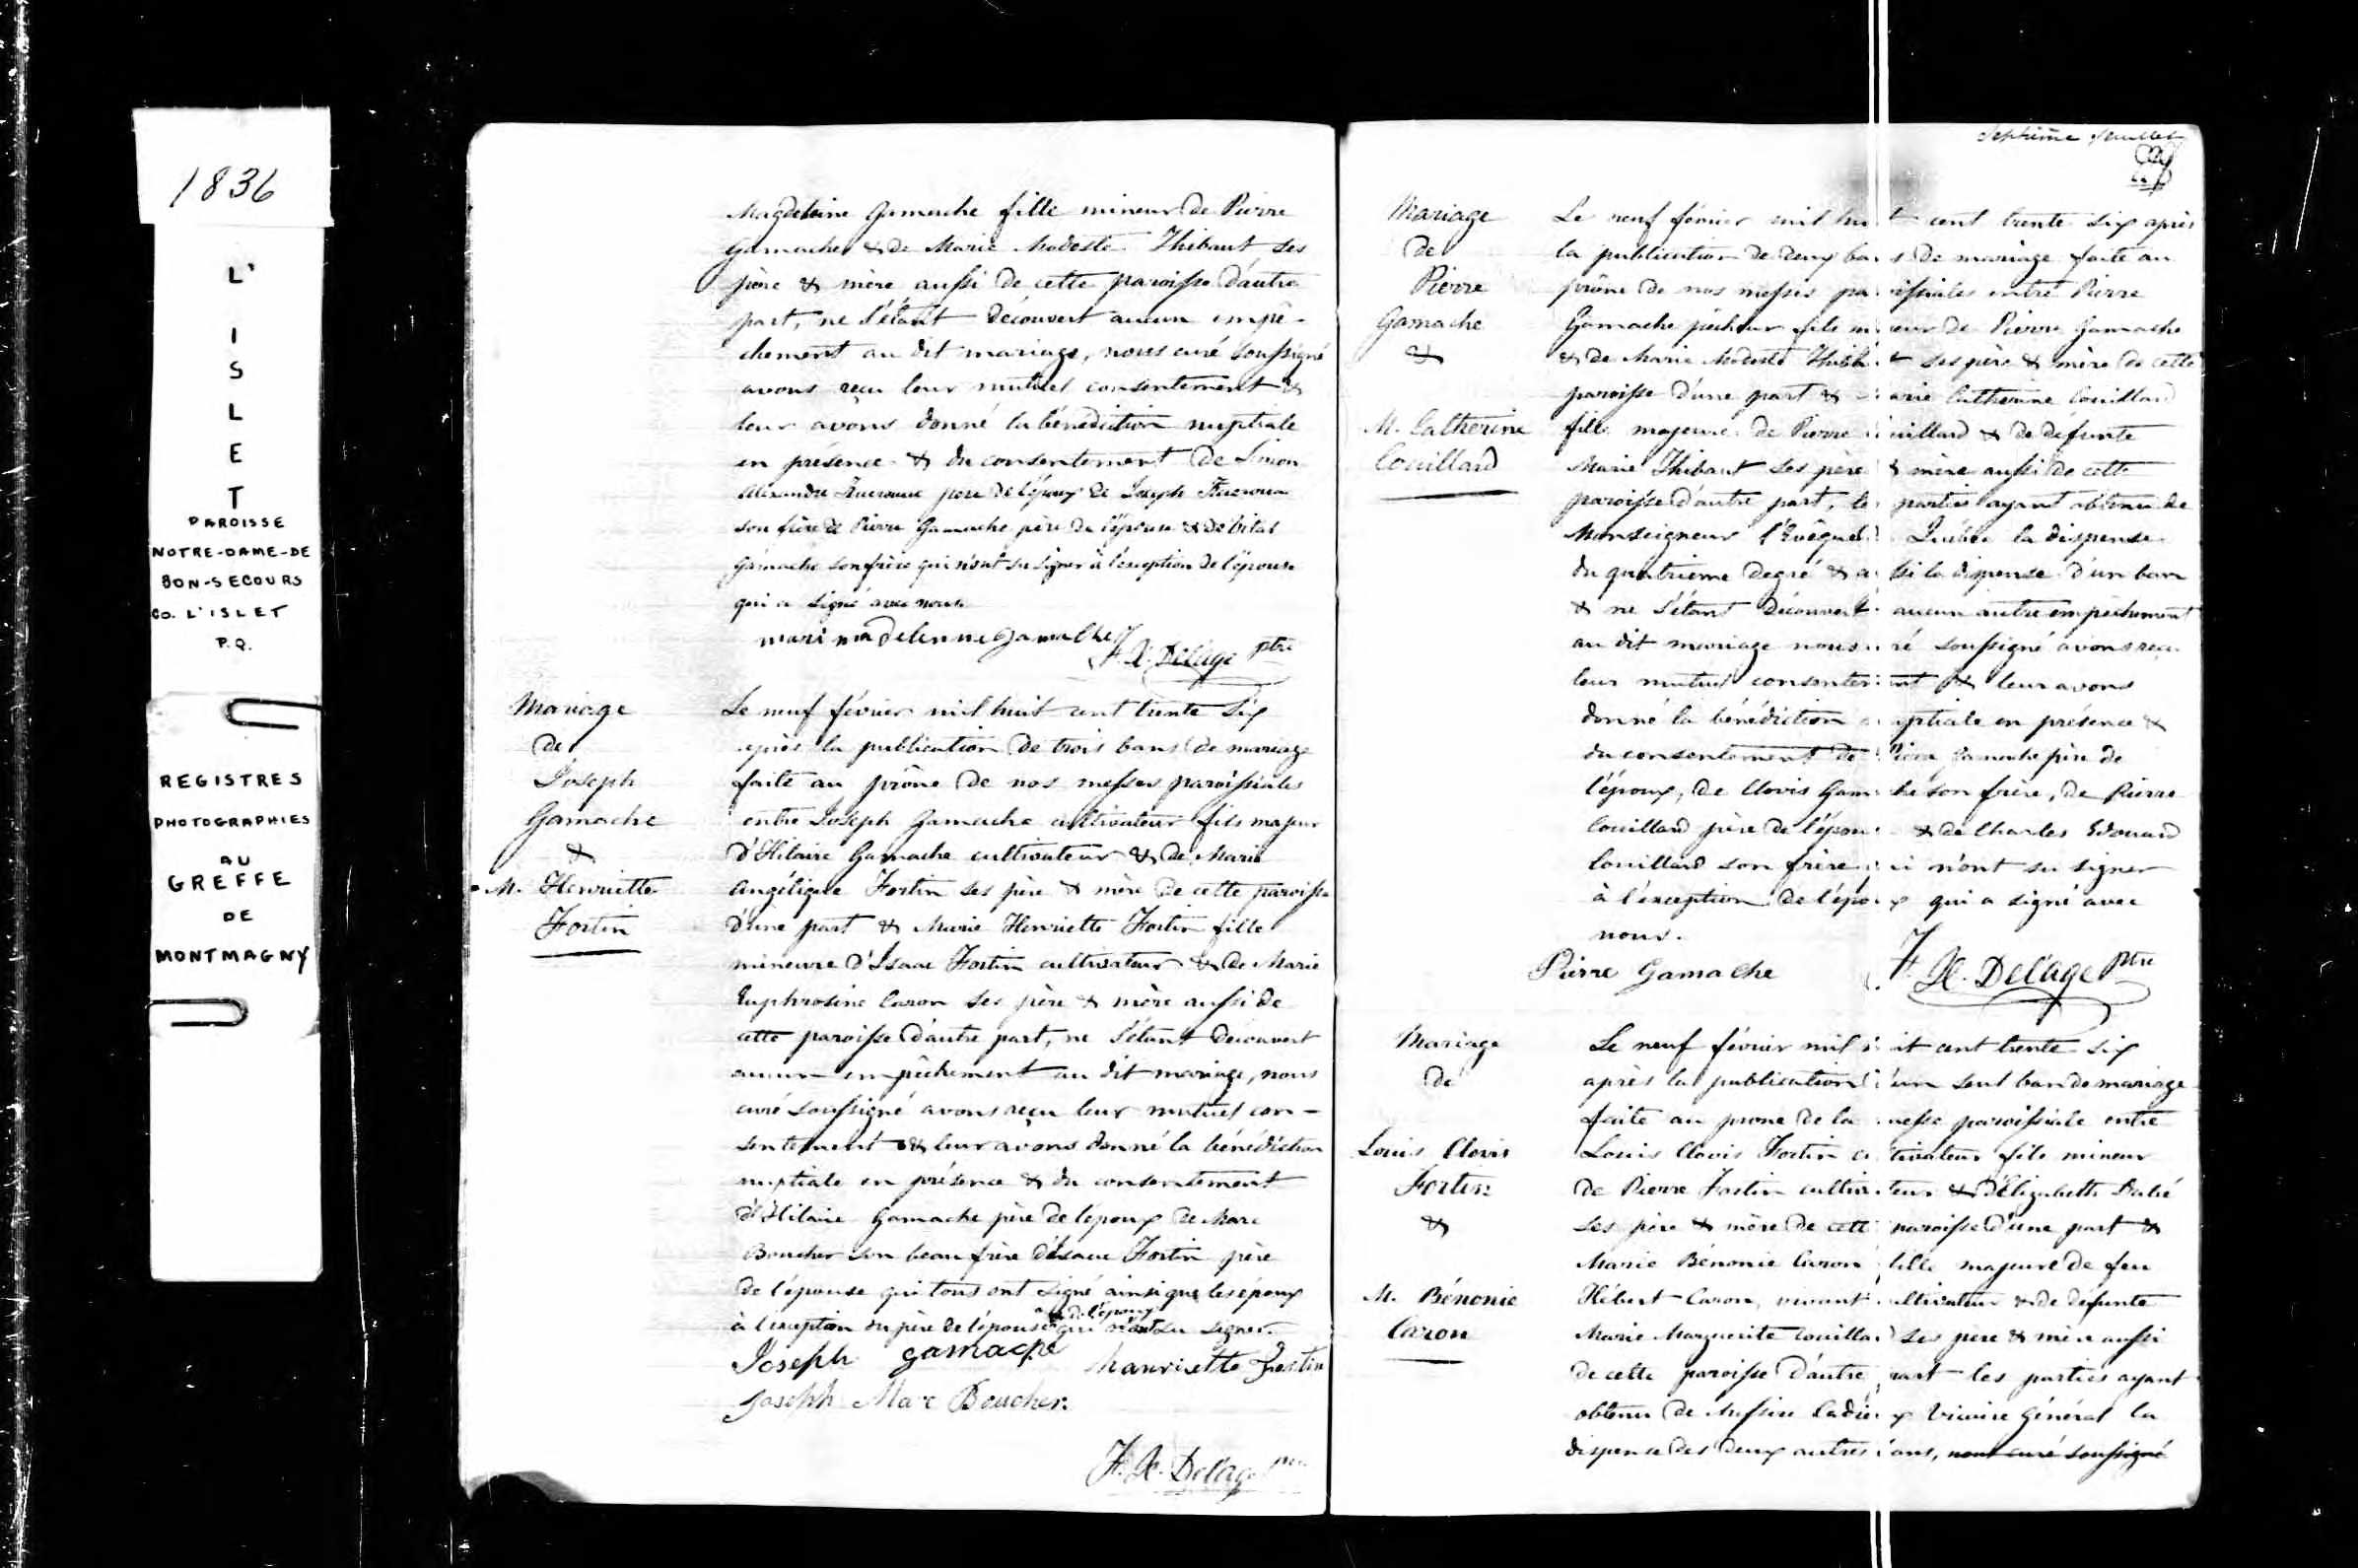 1836
L'
I
S
L
E
T
PAROISSE
NOTRE-DAME-DE
BON-SECOURS
CO. L'ISLET
P.Q.
REGISTRES
PHOTOGRAPHIES
AU
GREFFE
DE
MONTMAGNY
Magdeleine Gamache fille mineur de Pierre
Gamache & de Marie Modeste Thibaut ses
père & mère aussi de cette paroisse d'autre
part, ne s'étant découvert aucun empê-
chement au dit mariage, nous curé soussigné
avons reçu leur mutuel consentement &
leur avons donné la bénédiction nuptiale
en présence & du consentement de Simon
Alexandre père de l'époux de Joseph
son frère de Pierre Gamache père de l'épouse & de Vital
Gamache son frère qui n'ont su signer à l'exception de l'épouse
qui a signé avec nous
mari madelenne gamache
F. X. Delâge ptre
Mariage
de
Joseph
Gamache
&
M. Henriette
Fortin
Le neuf février mil huit cent trente six
après la publication de trois bans de mariage
faite au prône de nos messes paroissiales
entre Joseph Gamache cultivateur fils majeur
d'Hilaire Gamache cultivateur & de Marie
Angélique Fortin ses père & mère de cette paroisse
d'une part & Marie Henriette Fortin fille
mineure d'Isaac Fortin cultivateur & de Marie
Euphrosine Caron ses père & mère aussi de
cette paroisse d'autre part, ne s'étant découvert
aucun empêchement au dit mariage, nous
curé soussigné avons reçu leur mutuel con-
sentement & leur avons donné la bénédiction
nuptiale en présence & du consentement
d'Hilaire Gamache père de l'époux de Marc
Boucher son beau frère d'Isaac Fortin père
de l'épouse qui tous ont signé ainsi que les époux
de l'époux
à l'exception du père de l'épouse qui n'ont su signer.
Joseph gamache hanriette Fortin
Joseph Marc Boucher
F. X. Delâge ptre
Septième feuillet
Mariage
de
Pierre
Gamache
&
M. Catherine
Couillard
Le neuf février mil hu t cent trente six après
la publication de deux ba s de mariage faite au
prône de nos messes pa issiales entre Pierre
Gamache pêcheur fils m eur de Pierre Gamache
& de Marie Modeste Thib t ses père & mère de cette
paroisse d'une part & arie Catherine Couillard
fille majeure de Pierre uillard & de défunte
Marie Thibaut ses père & mère aussi de cette
paroisse d'autre part, le parties ayant obtenu de
Monseigneur l'Evêque Québec la dispense
du quatrième degré & a ssi la dispense d'un ban
& ne s'étant découvert aucun autre empêchement
au dit mariage nous ré soussigné avons reçu
leur mutuel consente nt & leur avons
donné la bénédiction uptiale en présence &
du consentement de Pierre Gamache père de
l'époux, de Clovis Gam he son frère, de Pierre
Couillard père de l'épou & de Charles Edouard
Couillard son frère i n'ont su signer
à l'exception de l'épo x qui a signé avec
nous.
Pierre Gamache F. X. Delâge ptre
Mariage
de
Louis Clovis
Fortin
&
M. Bénonie
Caron
Le neuf février mil it cent trente six
après la publication d'un seul ban de mariage
faite au prone de la messe paroissiale entre
Louis Clovis Fortin c tivateur fils mineur
de Pierre Fortin cultiva teur & d'Elizabeth
ses père & mère de cette paroisse d'une part &
Marie Bénonie Caron fille majeure de feu
Hébert Caron, vivant ultivateur & de défunte
Marie Marguerite Couillar d ses père & mère aussi
de cette paroisse d'autre part les parties ayant
obtenu de Messire Cadieu x Vicaire Général la
dispense des deux autres bans, nous curé soussigné